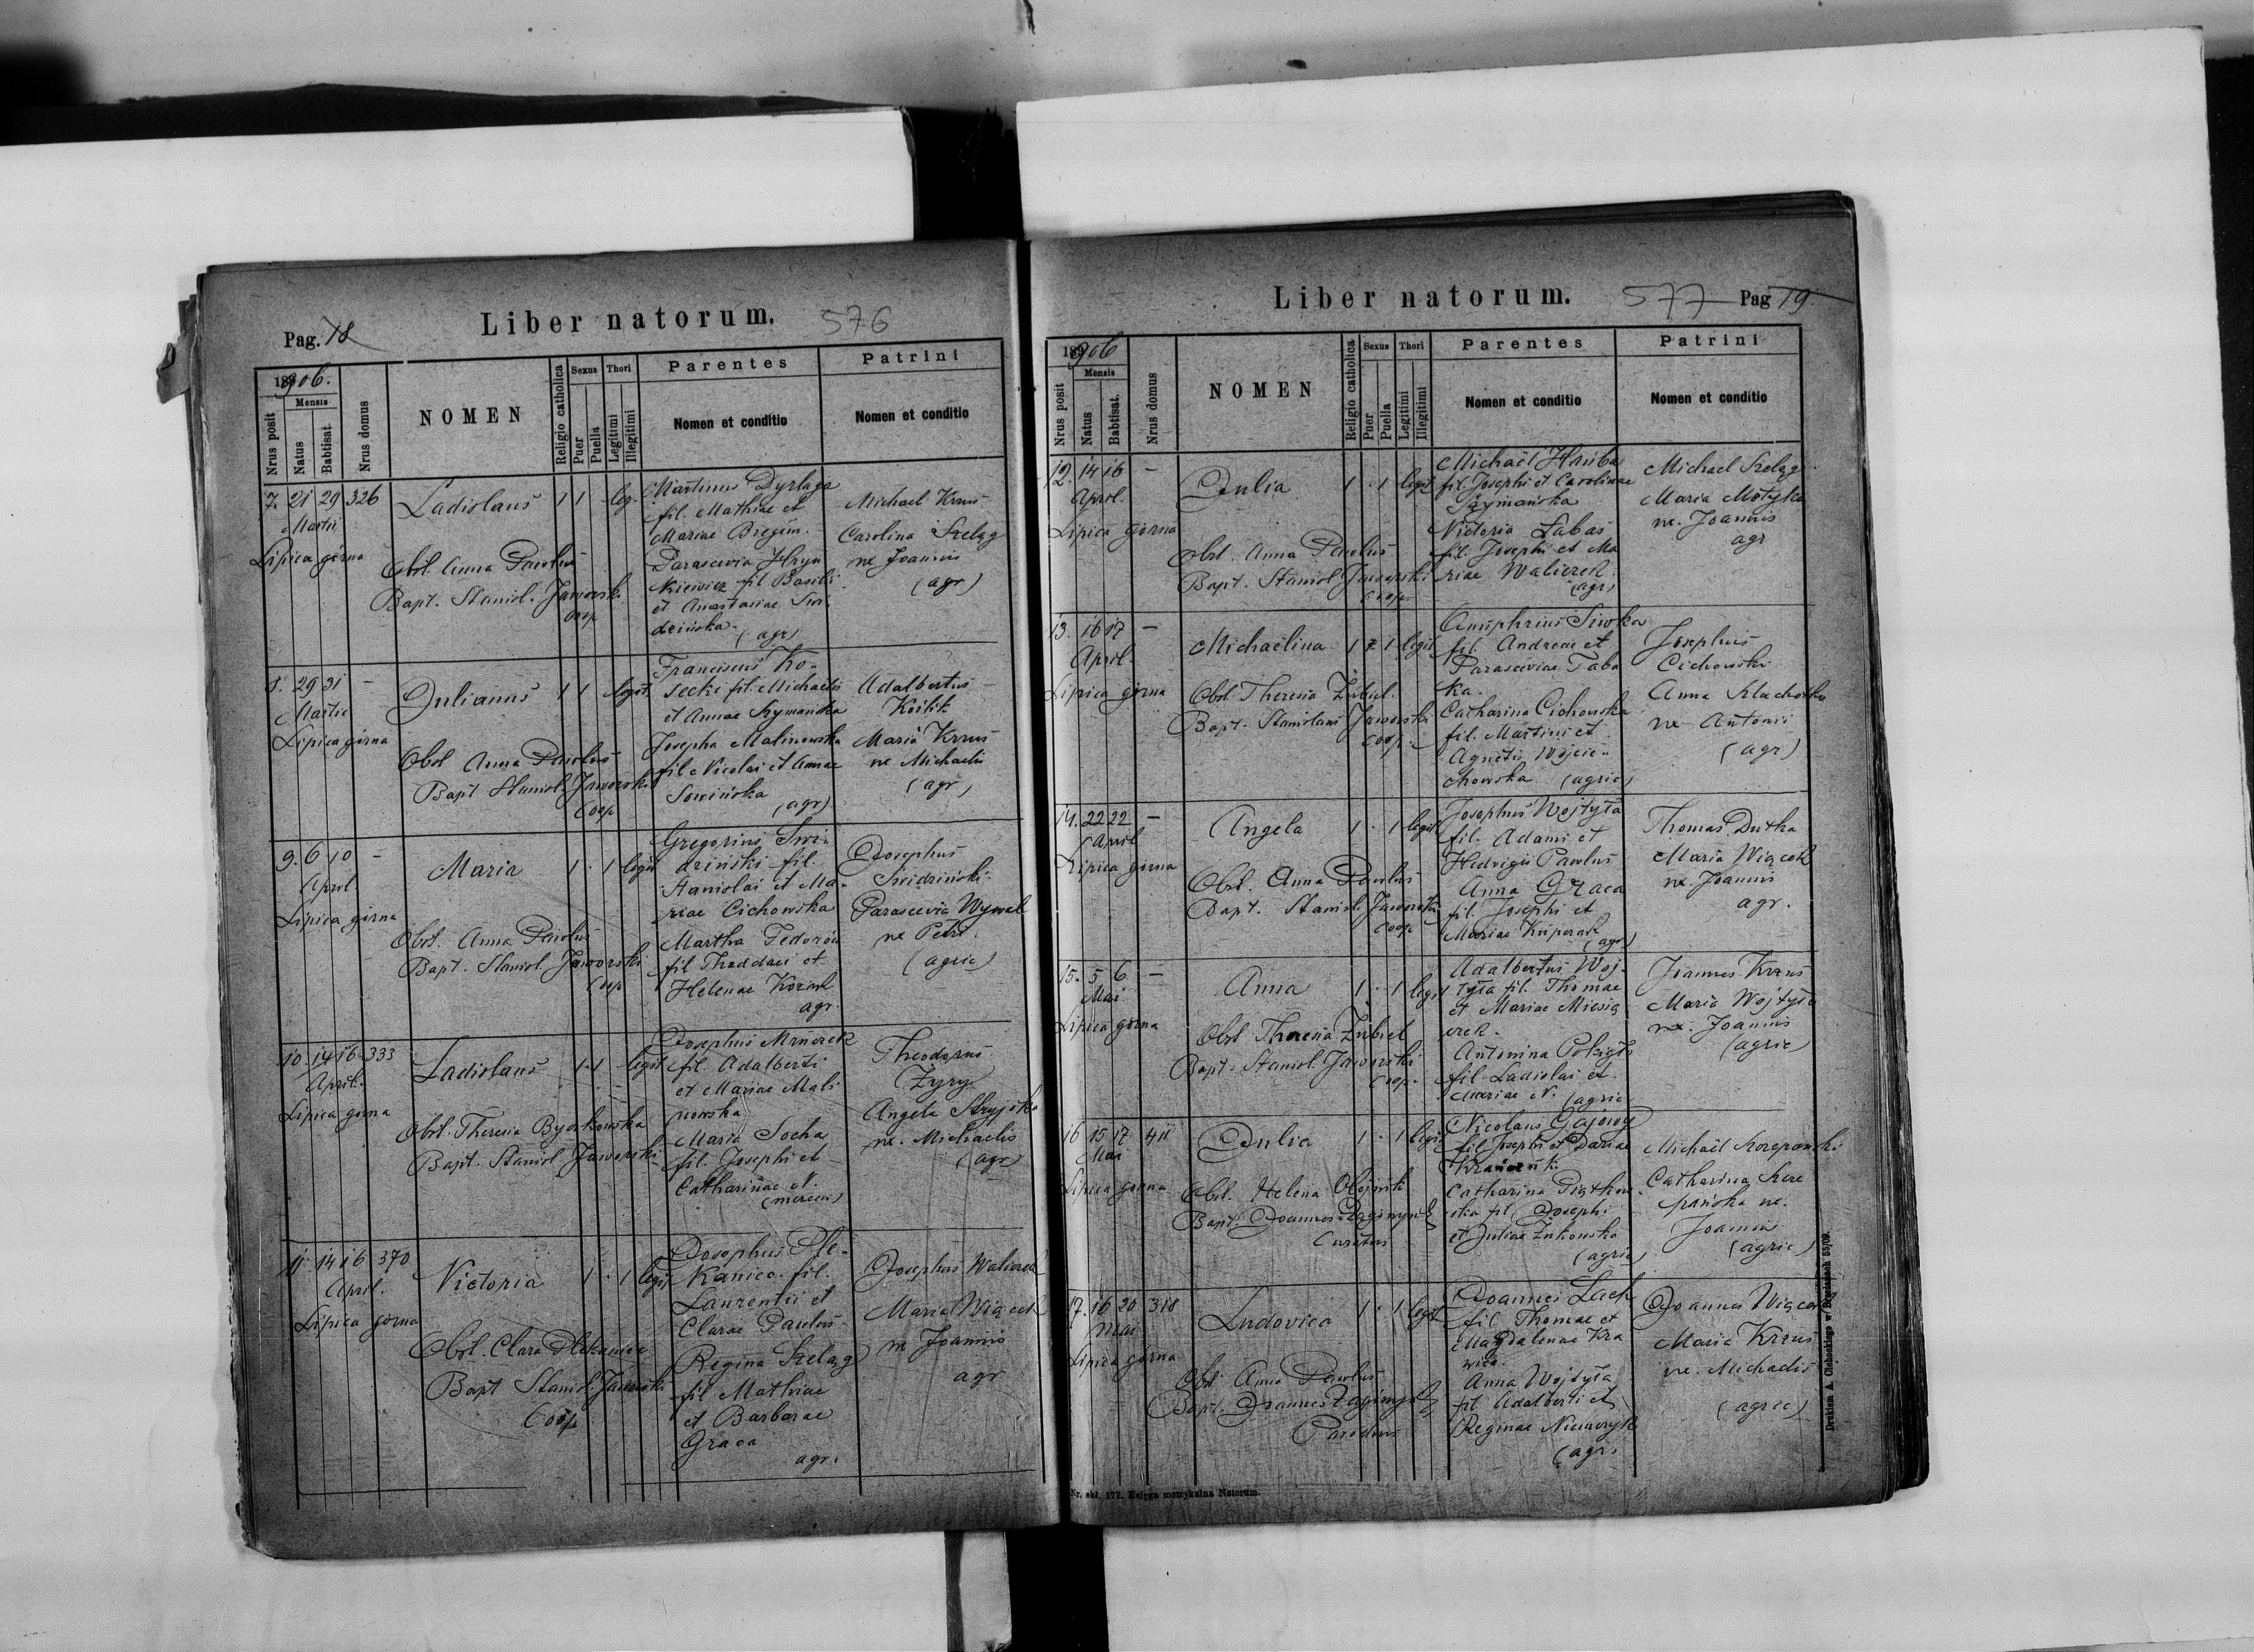 Pag. 18
Liber natorum.
576
1906.
Nrus posit
Mensis
Natus
Babtisat.
Nrus domus
NOMEN
Religio catholica
Sexus
Puer
Puella
Thori
Legitimi
Illegitimi
Parentes
Nomen et conditio
Patrini
Nomen et conditio
7. 21 29 326
Martii
Lipica górna
Ladislaus
1 1 leg.
Obst. Anna Pawluś
Bapt. Stanisl. Jaworski
coop
Martinus Dyrlaga
fil. Mathiae et
Mariae Biegun.
Parascevia Hryn
kiewicz fil Basili
et Anastasiae Swi
dzińska.
(agr)
Michael Krzus
Carolina Szeląg
ux Joannis
(agr)
8. 29 31 -
Martii
Lipica górna
Julianus
1 1 legit.
Obst Anna Pawluś
Bapt Stanisl. Jaworski
Coop
Franciscus Ko-
secki fil. Michaelis
et Annae Szymańska
Josepha Malinowska
fil Nicolai et Annae
Sowińska
(agr)
Adalbertus
Koślik
Maria Krzus
ux Michaelis
(agr)
9. 6 10 -
April
Lipica górna
Maria
1 . 1 legit
Obst. Anna Pawluś
Bapt. Stanisl. Jaworski
Coop
Gregorius Swi-
dziński fil.
Stanislai et Ma-
riae Cichowska
Martha Fedorów
fil Thaddaei et
Helenae
agr.
Josephus
Swidziński
Parascevia Wywal
ux Petri.
(agric)
10. 14 16 333
April.
Lipica gorna
Ladislaus
1 1 legit
Obst. Theresia
Bapt. Stanisl Jaworski
Josephus Mruczek
fil Adalberti
et Mariae Mali
nowska
Maria Socha
fil. Josephi et
Catharinae N.
(mercen)
Theodorus
Zyry
Angela
ux. Michaelis
(agr)
11. 14 16 370
April.
Lipica gorna
Victoria
1 . 1 legit
Obst. Clara Plekaniec
Bapt Stanisl. Jaworski
Coop
Josephus Ple-
kaniec fil.
Laurentii et
Clarae Pawluś
Regina Szeląg
fil Mathiae
et Barbarae
Graca
agr.
Josephus Waliczek
Maria Wiącek
ux Joannis
agr
Liber natorum.
577
Pag 19
1906
Nrus posit
Mensis
Natus
Babtisat.
Nrus domus
NOMEN
Religio catholica
Sexus
Puer
Puella
Thori
Legitimi
Illegitimi
Parentes
Nomen et conditio
Patrini
Nomen et conditio
12. 14 16 -
April.
Lipica górna
Julia
1 . 1 legit
Obst. Anna Pawluś
Bapt. Stanisl Jaworski
Coop
Michaël Hruba
fil Josephi et Carolinae
Szymańska
Victoria Labas
fil. Josephi et Ma
riae Waliczek.
(agr)
Michael Szeląg
Maria Motyka
ux. Joannis
agr
13. 16 17 -
April.
Lipica górna
Michaëlina
1 1 legit
Obst. Theresia Zubiel.
Bapt. Stanislaus Jaworski
Coop.
Onuphrius Siwka
fil. Andreae et
Parasceviae Taba
ka.
Catharina Cichowska
fil. Martini et
Agnetis Wojcie-
chowska (agric)
Josephus
Cichowski
Anna
ux Antonii
(agr)
14. 22 22 -
April
Lipica górna
Angela
1 . 1 legit
Obst. Anna Pawluś
Bapt. Stanisl. Jaworski
Coop
Josephus Wojtyta
fil. Adami et
Hedvigis Pawluś
Anna Graca
fil. Josephi et
Mariae
(agr)
Thomas Dutka
Maria Wiącek
ux. Joannis
agr.
15. 5 6 -
Mai
Lipica górna
Anna
1 . 1 legit
Obst Theresia Zubiel
Bapt. Stanisl Jaworski
Coop.
Adalbertus Woj-
tyta fil. Thomae
et Mariae Miesią
czek.
Antonina
fil. Ladislai et
Mariae N. (agric
Joannes Krzus
Maria Wojtyta
ux. Joannis
(agric)
16 15 17 411
Mai
Lipica gorna
Julia
1 . 1 legit
Obst. Helena Olejnik
Bapt. Joannes
Curatus
Nicolaus Gajowy
fil Josephi et Dariae
Catharina Piątkow-
ska fil Josephi
et Juliae Żukowska
(agric)
Michaël
Catharina
ux.
Joannis
(agric)
17. 16 20 318
Mai
Lipica górna
Ludovica
1 . 1 legit
Obst Anna Pawluś
Bapt. Joannes
Parochus
Joannes Lach
fil Thomae et
Magdalenae Kra
wiec.
Anna Wojtyta
fil. Adalberti et
Reginae Niemczyk
(agr.
Joannes Wiącek
Maria Krzus
ux. Michaelis
(agric)
Nr. skł. 177. Księga metrykalna Natorum.
Drukiem A. Cichockiego w Brzeżanach 55/09.